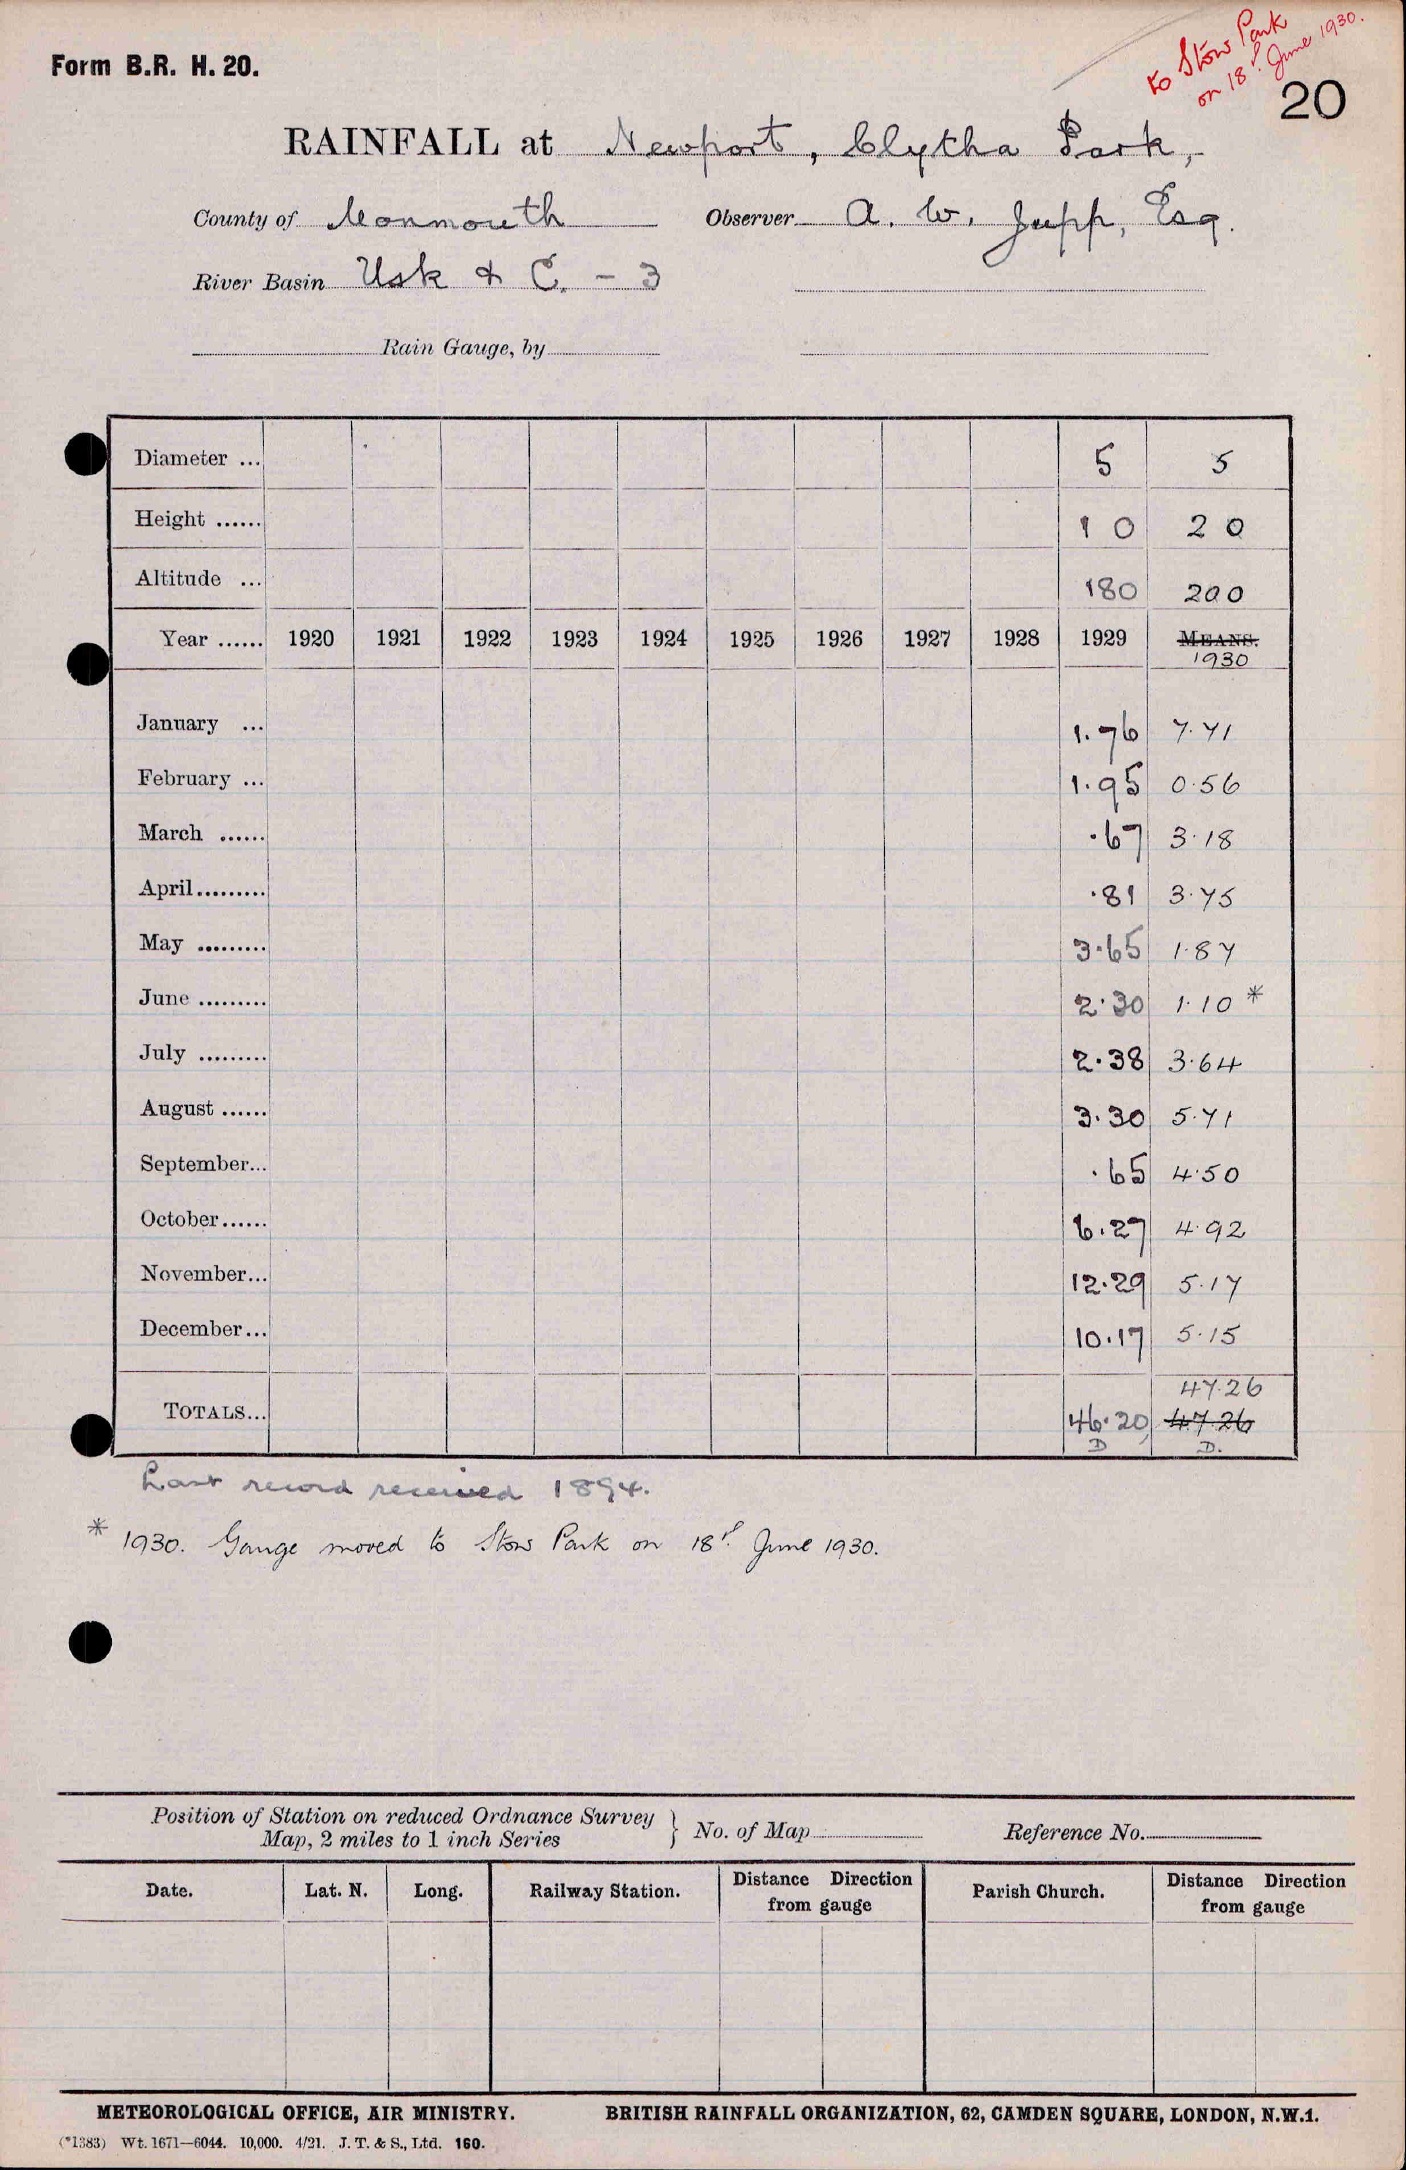 to Stow Park
on 18th June 1930.
Form B.R. H. 20.
20
RAINFALL at Newport, Clytha Park,
County of Monmouth Observer A. W. Jupp, Esq.
River Basin Usk & C. - 3
Rain Gauge, by
Diameter ... 5 5
Height ...... 1 0 2 0
Altitude ... 180 200
Year ...... 1920 1921 1922 1923 1924 1925 1926 1927 1928 1929 MEANS.
1930
January ... 1.76 7.71
February ... 1.95 0.56
March ...... .67 3.18
April......... .81 3.75
May ......... 3.65 1.87
June ......... 2.30 1.10 *
July ......... 2.38 3.64
August ...... 3.30 5.71
September... .65 4.50
October...... 6.27 4.92
November... 12.29 5.17
December... 10.17 5.15
47.26
TOTALS... 46.20 47.26
D D.
Last record received 1894.
* 1930. Gauge moved to Stow Park on 18th June 1930.
Position of Station on reduced Ordnance Survey
Map, 2 miles to 1 inch Series } No. of Map Reference No.
Date. Lat. N. Long. Railway Station. Distance Direction from gauge Parish Church. Distance Direction from gauge
METEOROLOGICAL OFFICE, AIR MINISTRY. BRITISH RAINFALL ORGANIZATION, 62, CAMDEN SQUARE, LONDON, N.W.1.
(*1383) Wt. 1671—6044. 10,000. 4/21. J. T. & S., Ltd. 160.